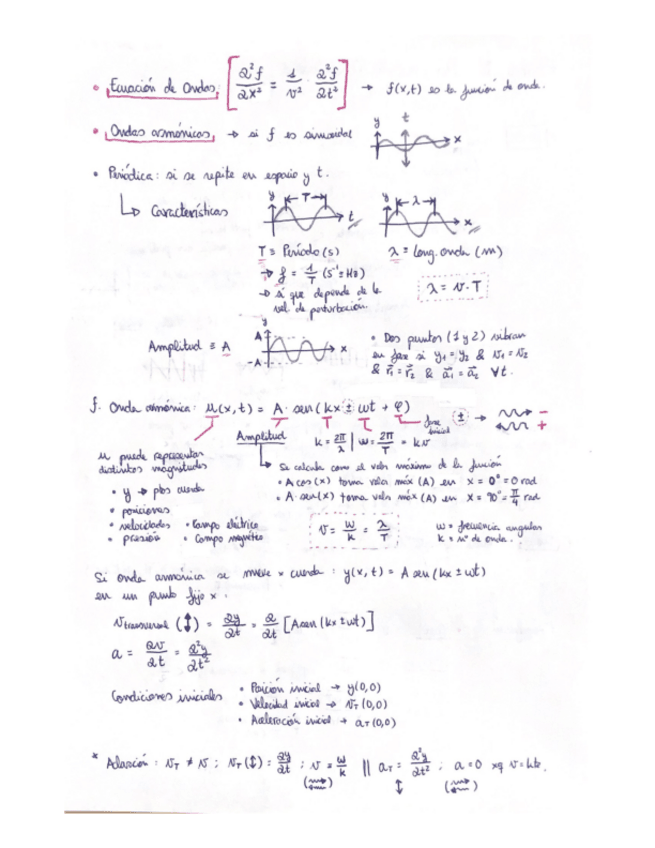 • Ecuación de Ondas: [∂²f/∂x² = 1/v² · ∂²f/∂t²] → f(x,t) es la función de onda.
y t
• Ondas armónicas → si f es sinusoidal x
• Periódica: si se repite en espacio y t.
↳ Características y T t y λ x
T = Período (s) λ = long. onda (m)
→ f = 1/T (s⁻¹ = Hz) λ = v · T
→ sí que depende de la
vel. de perturbación.
y
Amplitud ≡ A A -A x • Dos puntos (1 y 2) vibran
en fase si y₁ = y₂ & v₁ = v₂
& r⃗₁ = r⃗₂ & a⃗₁ = a⃗₂ ∀t.
f. Onda armónica: μ(x,t) = A · sen(kx ± ωt + φ) fase inicial (±) → - +
Amplitud k = 2π/λ | ω = 2π/T = kv
μ puede representar
distintas magnitudes
• y → ptos cuerda
• posiciones
• velocidades • Campo eléctrico
• presión • Campo magnético
↳ Se calcula como el valor máximo de la función
• A cos(x) toma valor máx (A) en x = 0° = 0 rad
• A · sen(x) toma valor máx (A) en x = 90° = π/4 rad
v = ω/k = λ/T ω = frecuencia angular
k = nº de onda.
Si onda armónica se mueve × cuerda: y(x,t) = A sen(kx ± ωt)
en un punto fijo x.
v transversal (↕) = ∂y/∂t = ∂/∂t [A sen(kx ± ωt)]
a = ∂v/∂t = ∂²y/∂t²
Condiciones iniciales • Posición inicial → y(0,0)
• Velocidad inicial → v_T(0,0)
• Aceleración inicial → a_T(0,0)
* Aclaración: v_T ≠ v; v_T(↕) = ∂y/∂t; v = ω/k || a_T = ∂²y/∂t²; a = 0 xq v = kte.